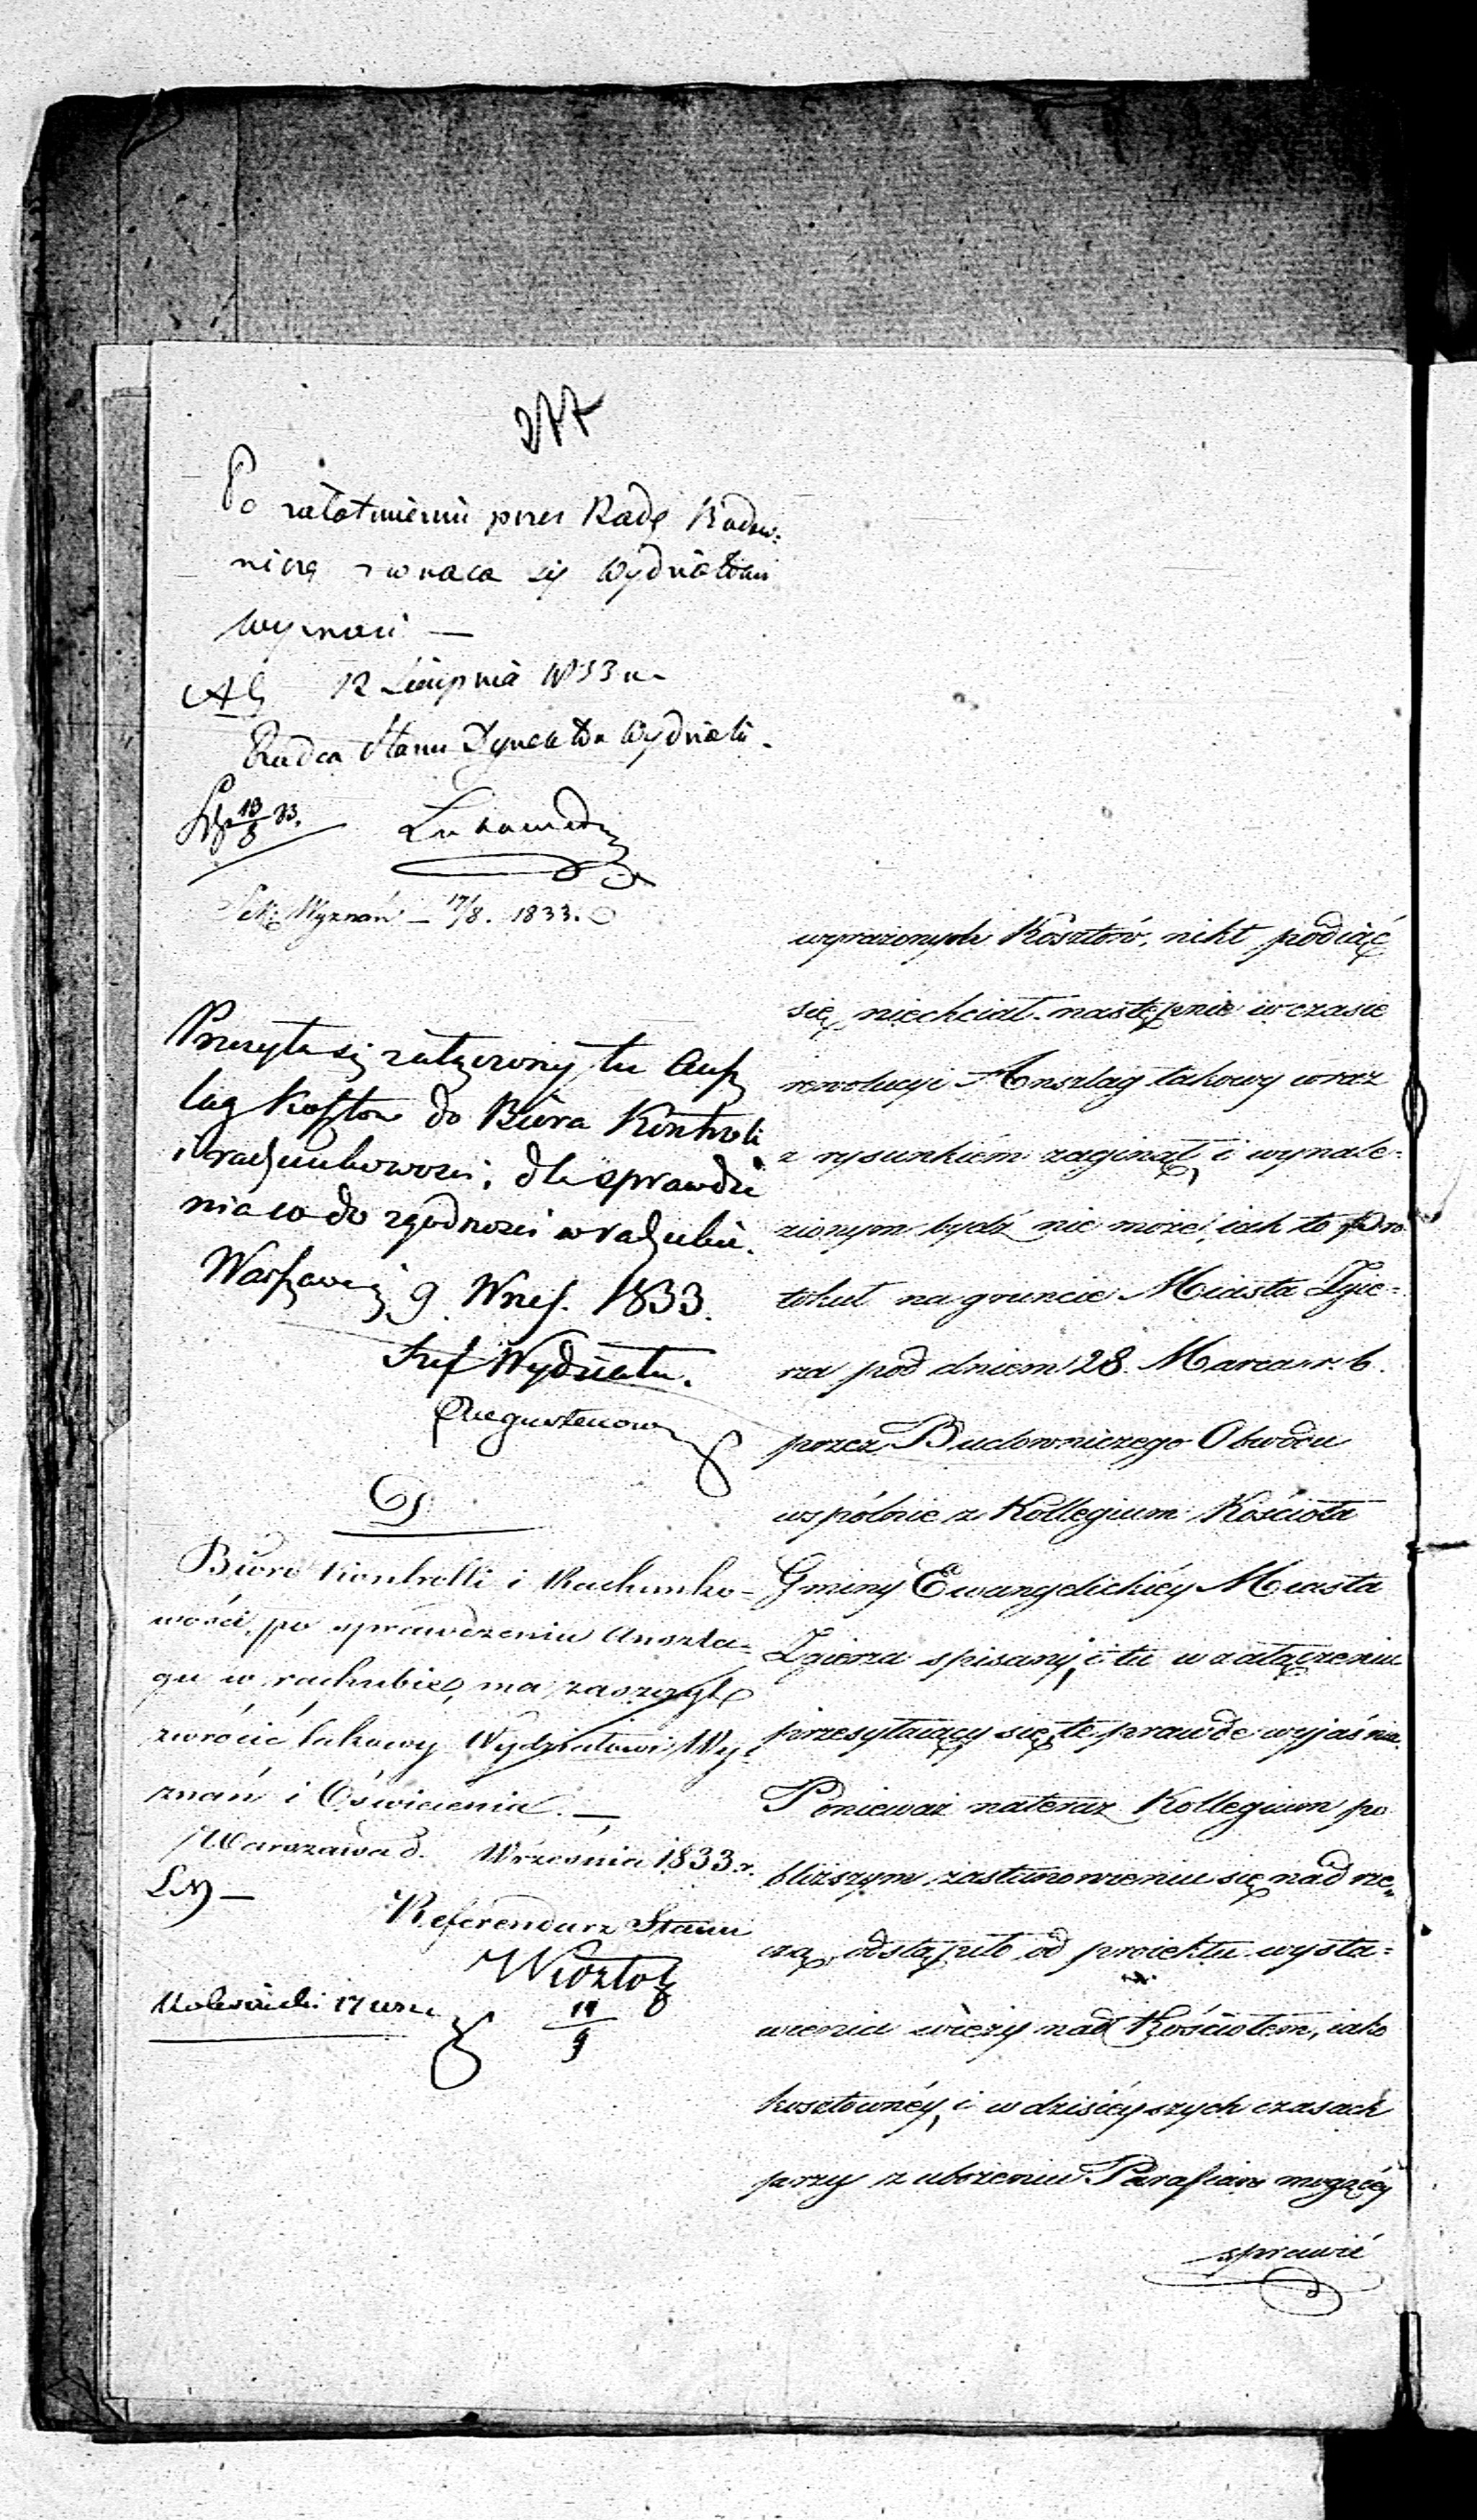 277
Po załatwieniu przez Radę Budow-
niczą zwraca się Wydziałowi
Wyznań —
12 Sierpnia 1833 r.
Radca Stanu Dyrektor Wydziału
13/8 33.
Sek: Wyznań — 17/8. 1833.
Przesyła się załączony tu Ansz
lag kosztów do Biura Kontroli
i rachunkowości, dla sprawdze
nia co do zgodności w rachubie.
Warszawa 9. Wrześ. 1833.
Szef Wydziału.
Biuro Kontrolli i Rachunko-
wości, po sprawdzeniu Anszla-
gu w rachubie, ma zaszczyt
zwrócić takowy Wydziałowi Wy-
znań i Oświecenia. —
Warszawa d. Września 1833 r.
Referendarz Stanu
17
11/9
wyrażonych Kosztów, nikt podiąć
się niechciał. następnie w czasie
rewolucyi Anszlag takowy wraz
z rysunkiem zaginął i wynale-
zionym bydź nie może, iak to Pro
tokuł na gruncie Miasta Zgie-
rza pod dniem 28. Marca r. b.
przez Budowniczego Obwodu
wspólnie z Kollegium Kościoła
Gminy Ewangelickiéy Miasta
Zgierza spisany, i tu w załączeniu
przesyłaiący się, tę prawdę wyjaśnia.
Ponieważ nateraz Kollegium po
bliższym zastanowieniu się nad rze-
czą, odstąpiło od proiektu wysta-
wienia wieży nad Kościołem, iako
kosztownéy, i w dzisiéyszych czasach
przy zubożeniu Parafian mogącéy
sprawić